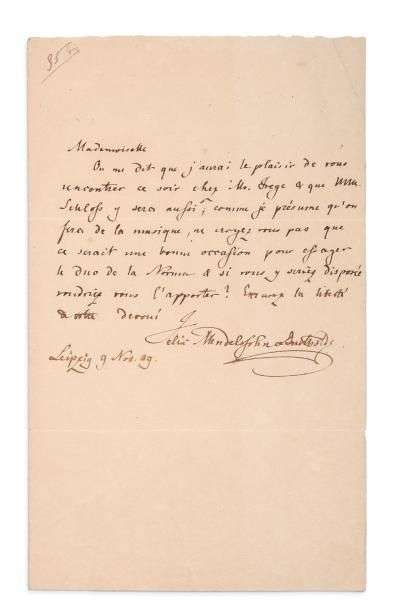 Mademoiselle
On me dit que j'aurai le plaisir de vous
rencontrer ce soir chez Mr. Frege & que Mlle
Schloss y sera aussi; comme je présume qu'on
fera de la musique, ne croyez vous pas que
ce serait une bonne occasion pour essayer
le duo de la Norma & si vous y seriez disposée
voudriez vous l'apporter? Excusez la liberté
de votre devoué
Felix Mendelssohn Bartholdy
Leipzig 9 Nov. 39.